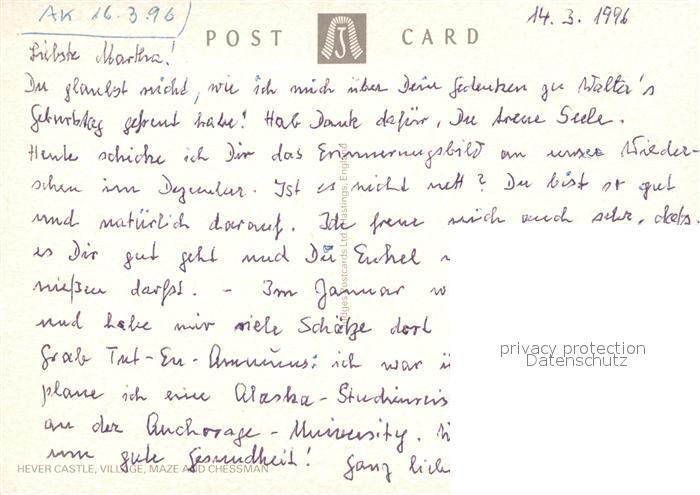 AK 16.3.96
14.3.1996
POST CARD
Liebste Martha!
Du glaubst nicht, wie ich mich über Dein Gedenken zu Walter's
Geburtstag gefreut habe! Hab Dank dafür, Du treue Seele.
Heute schicke ich Dir das Erinnerungsbild an unser Wieder-
sehen im Dezember. Ist es nicht nett? Du bist so gut
und natürlich darauf. Ich freue mich auch sehr, dass
es Dir gut geht und Du Enkel
nießen darfst. - Im Januar
und habe mir viele Schätze dort
Grab Tut-En-Ammuns: ich war
plane ich eine Alaska-Studienreis
an der Anchorage-University.
um gute Gesundheit! Ganz
Judges Postcards Ltd Hastings, England
HEVER CASTLE, VILLAGE, MAZE AND CHESSMAN
privacy protection
Datenschutz